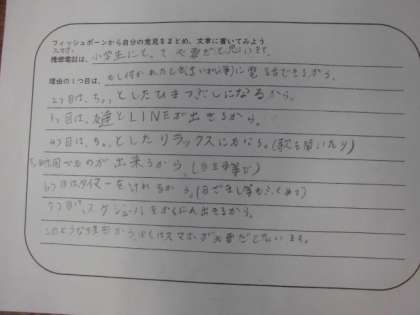 フィッシュボーンから自分の意見をまとめ、文章に書いてみよう
携帯電話は、小学生にとって必要だと思います。
理由の1つ目は、もし何かあたとき
2つ目は、ちょっとしたひまつぶしになるから。
3つ目は、友達とLINEが出きるから。
4つ目は、ちょっとしたリラックスになる。(歌を聞いたり)
が出来るから、
6つ目はタイマーをけれるから。(目ざまし等もふくめて)
7つ目は、スケジュールをかくにん出きるから。
このような理由から、ぼくはスマホが必要だと思います。